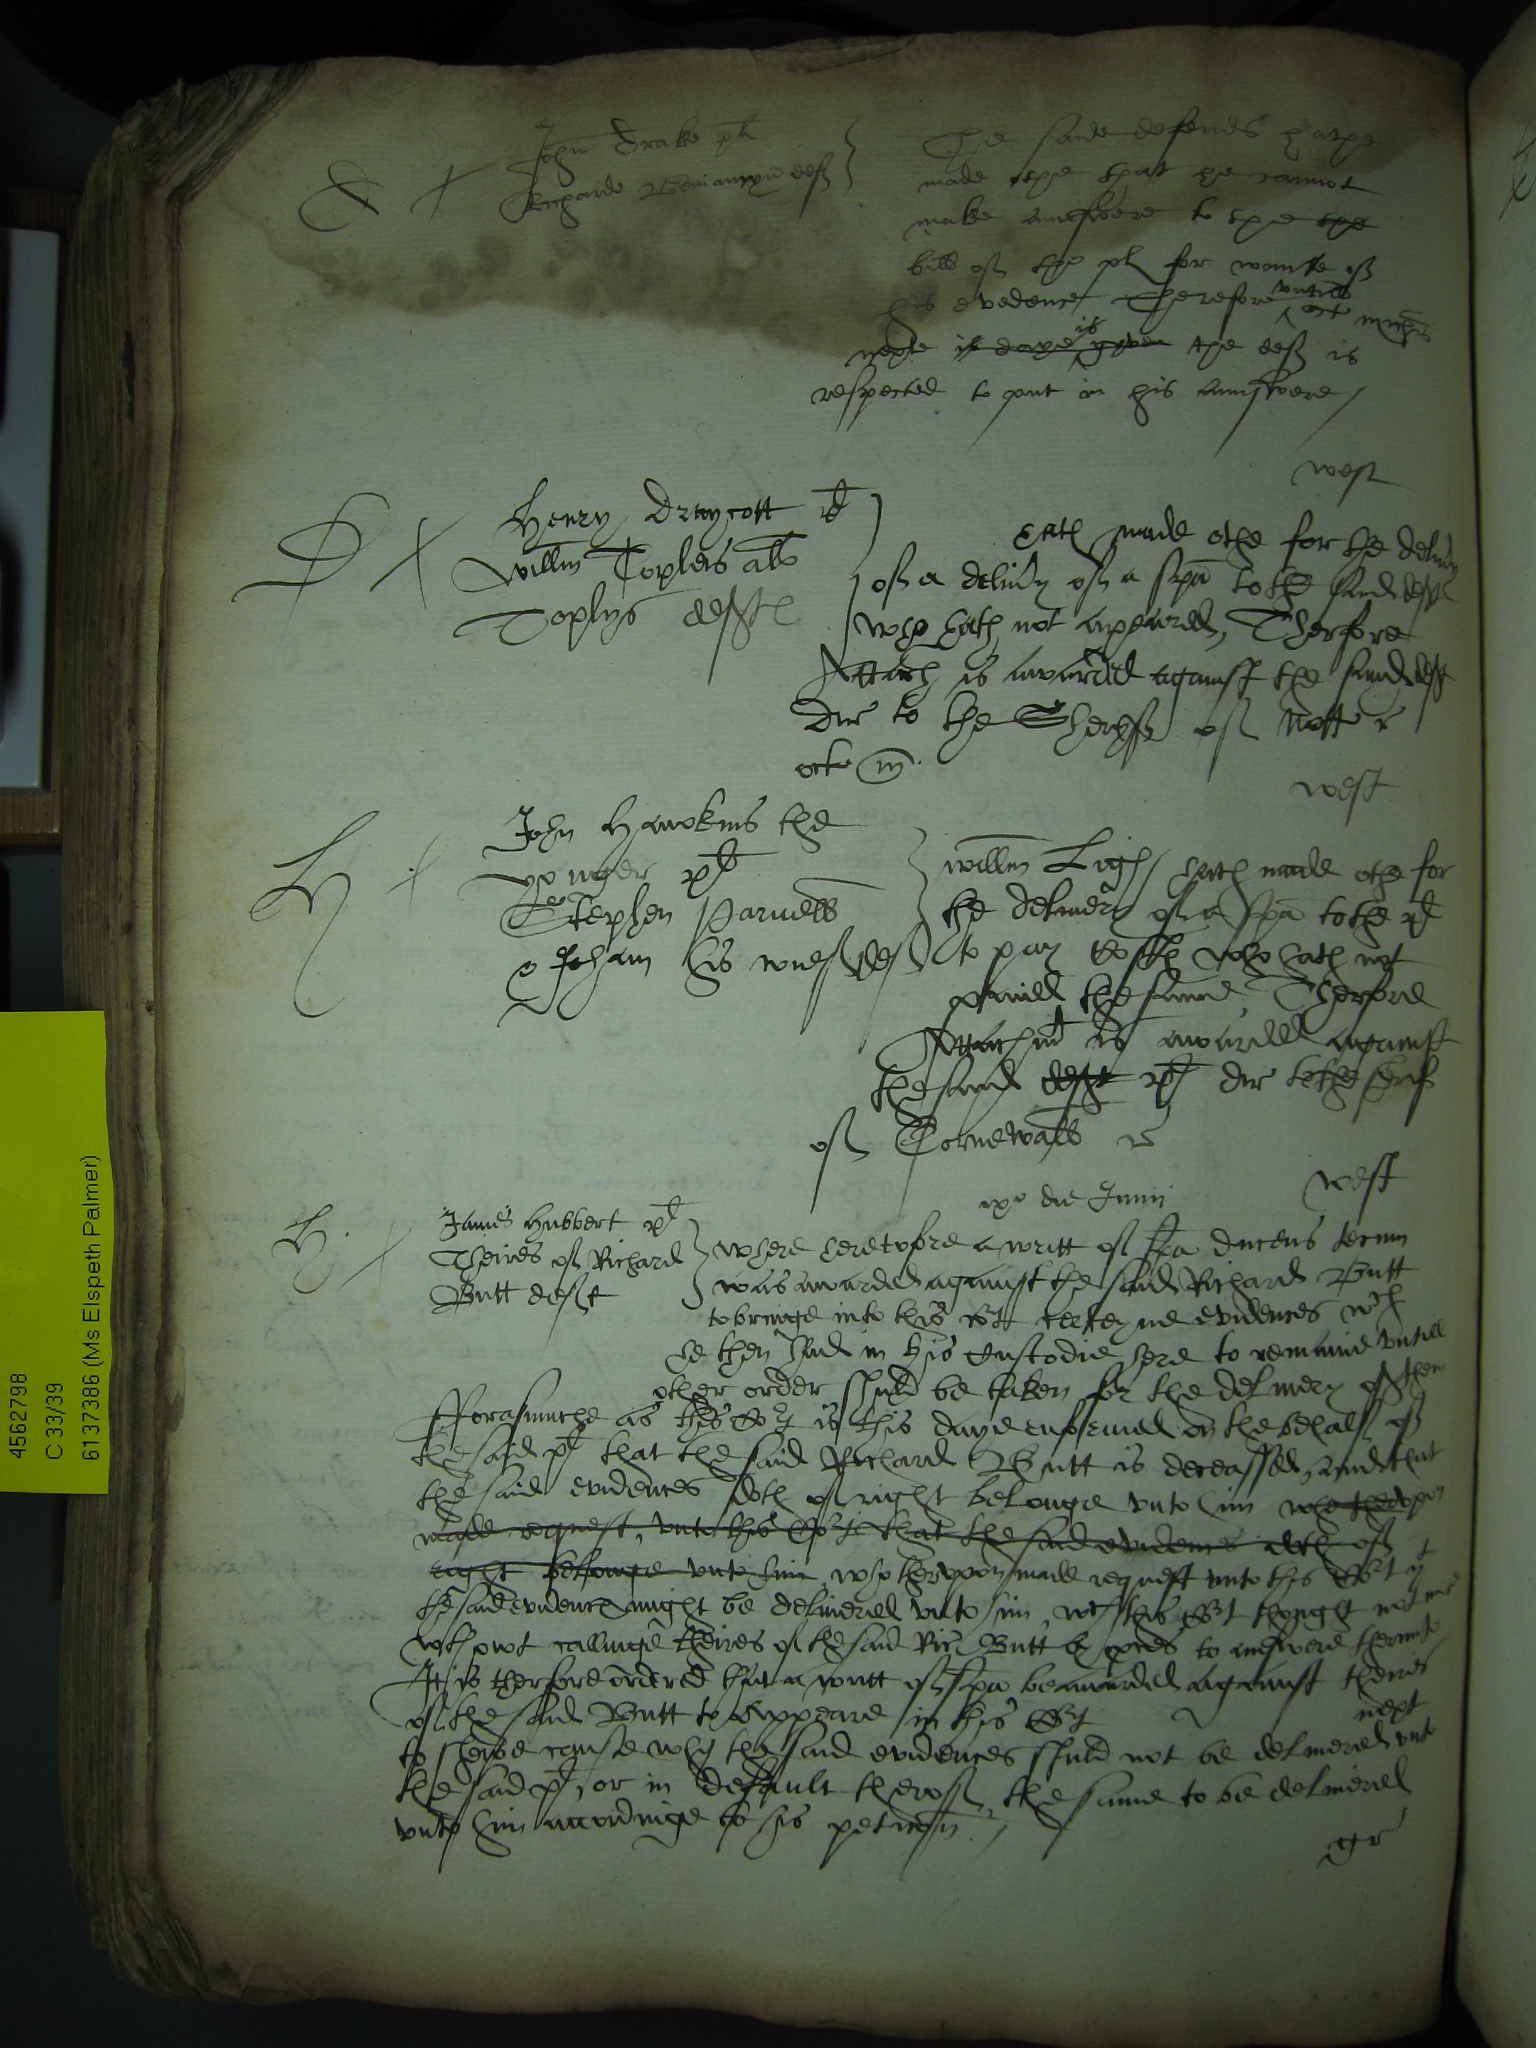 John Drake pl
Richarde def
The saide defend hathe
made othe that he cannot
make aunswere to the the
bill of the pl for wante of
his evedence Therefore untill oct michis
nexte is daye is gyven the def is
respected to put in his aunswere /
west
D x
Henry Draycott pl
Willm Topleis als
Toplys deft
hath made othe for the delivery
of a delivy of a spa to the said deft
who hath not apeared, Therfore
Attach is awarded against the said deft
dir to the Sheryff of Nott r
octo m
west
H x
John Hawkins the
younger pl
Stephen Parnell
& Johan his wief def
Willm Ligh / hath made othe for
the delivery of a spa to the pl
to pay costs who hath not
paied the same Therfore
Attachmt is awarded against
the said deft pl dir to the sherif
of Cornewall r
west
xxo die Junii
H x
James Hubbert pl
Theires of Richard
Butt deft
Where heretofore a writt of spa ducens tecum
was awarded against the said Richard Butt
to bringe into this Cort certeyne evidences wch
he then had in his custodie here to remaine untill
other order shuld be taken for the delivery of them
Fforasmuche as this Cort is this daye enformed on the behalf of
the said pl that the said Richard Butt is deceassed, and that
the said evidences doth of right belonge unto him who therupon
made request, unto this Cort that the said evidences doth of
right belonge unto him, who therupon made request unto this Cort yt
the said evidence might be delivered unto him, wch this Cort thought not
wthowt callinge theires of the said Ric Butt by proces to answere therunto
It is therfore ordered that a writt of spa be awarded against theires
of the said Butt to appeare in this Cort next
to shewe cause why the said evidences shuld not be delivered unto
the said pl, or in default therof the same to be delivered
unto him accordinge to his peticon /
gr
4562798
C 33/39
6137386 (Ms Elspeth Palmer)